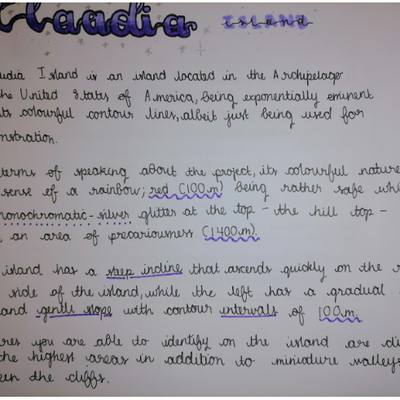 Claadia ISLAND
udia Island is an island located in the Archipelago
the United States of America, being exponentially eminent
its colourful contour lines, albeit just being used for
monstration.
terms of speaking about the project, its colourful nature
sense of a rainbow; red (100m) being rather safe whi
monochromatic-silver glitter at the top - the hill top -
an area of precariousness (1400m).
island has a steep incline that ascends quickly on the r
side of the island, while the left has a gradual
and gentle slope with contour intervals of 100m.
res you are able to identify on the island are cli
the highest areas in addition to miniature valleys
een the cliffs.